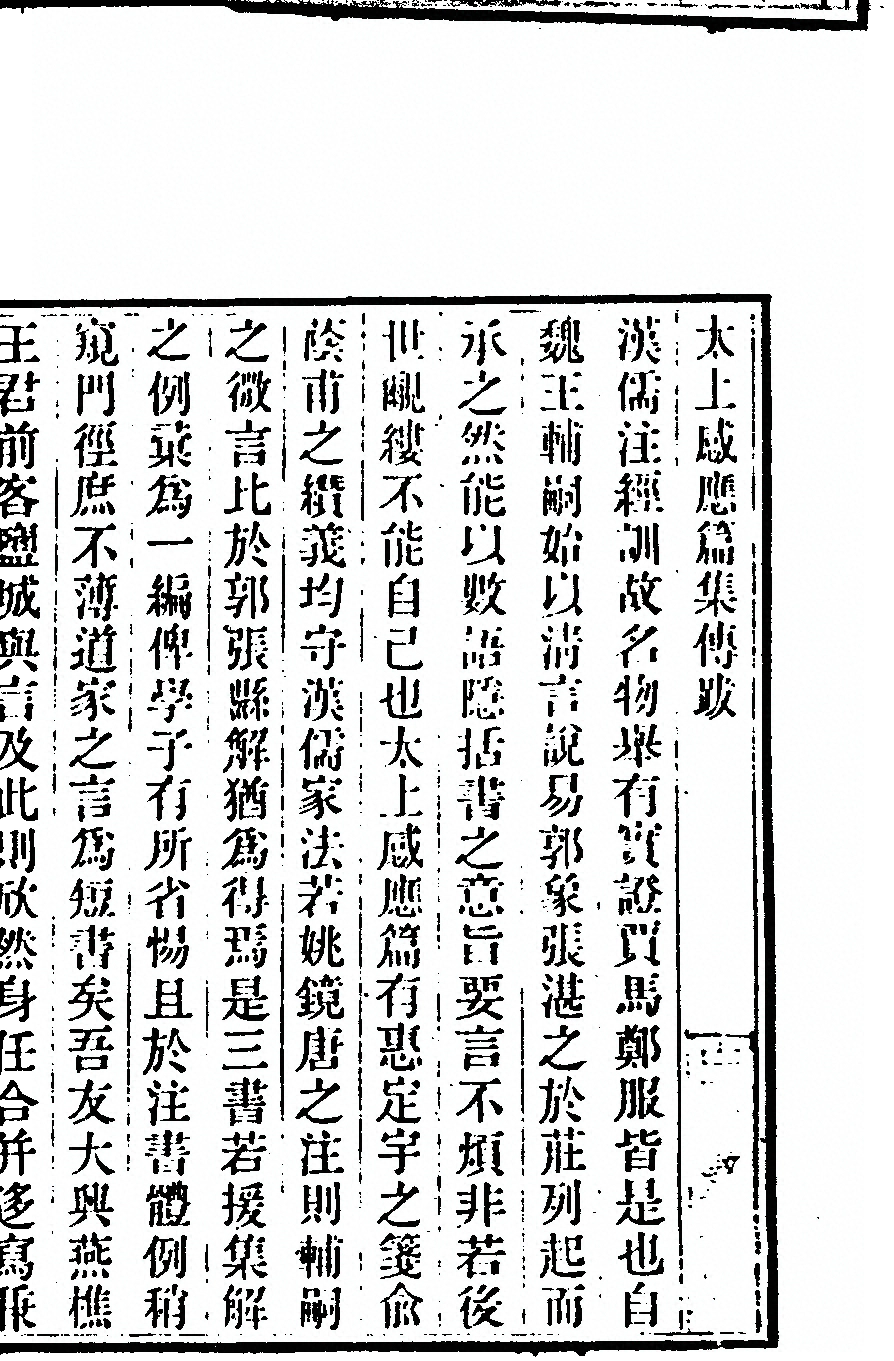 太上感應篇集傳跋
漢儒注經訓故名物舉有實證賈馬鄭服皆是也自
魏王輔嗣始以清言說易郭象張湛之於莊列起而
承之然能以數語隱括書之意旨要言不煩非若後
世覼縷不能自已也太上感應篇有惠定宇之箋俞
蔭甫之纘義均守漢儒家法若姚鏡唐之注則輔嗣
之微言比於郭張縣解猶爲得焉是三書若援集解
之例彙爲一編俾學子有所省惕且於注書體例稍
窺門徑庶不薄道家之言爲短書矣吾友大興燕樵
王君前客鹽城與言及此則欣然身任合并迻寫秉